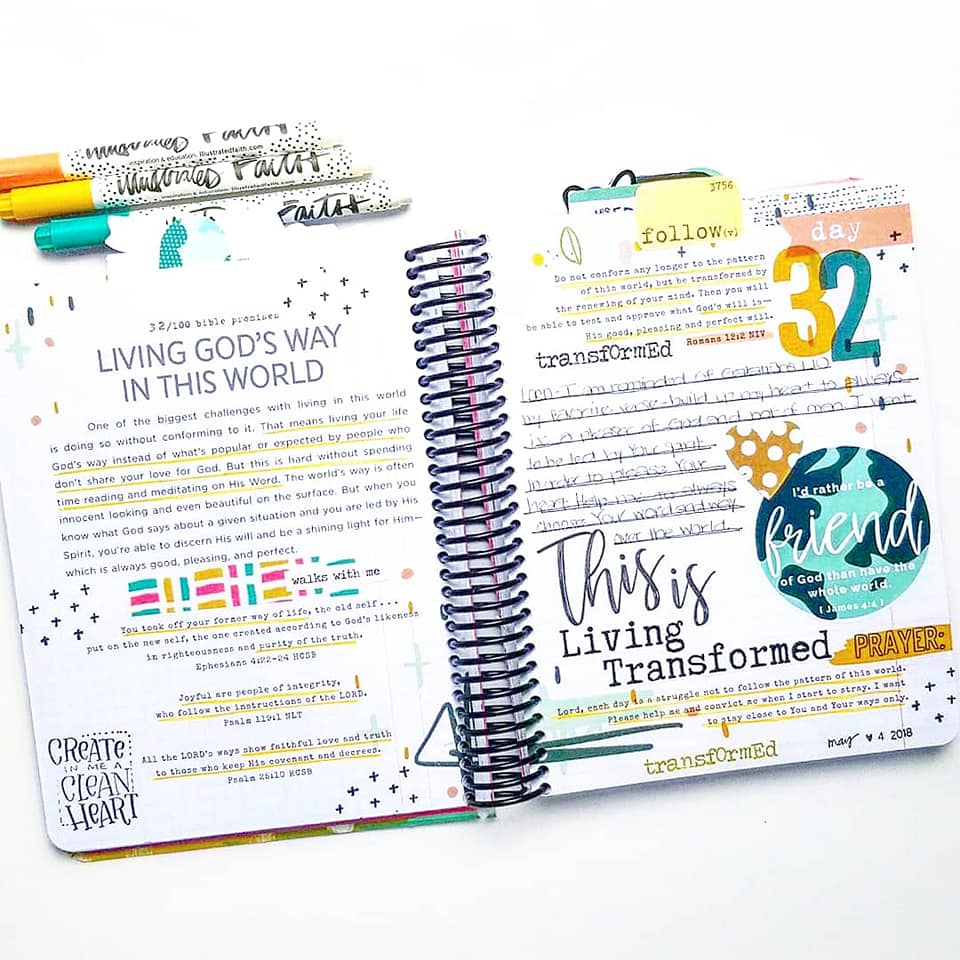 illustrated Faith
inspiration & education. illustratedfaith.com
illustrated Faith
inspiration & education. illustratedfaith.com
Faith
32/100 bible promises
LIVING GOD'S WAY
IN THIS WORLD
One of the biggest challenges with living in this world
is doing so without conforming to it. That means living your life
God's way instead of what's popular or expected by people who
don't share your love for God. But this is hard without spending
time reading and meditating on His Word. The world's way is often
innocent looking and even beautiful on the surface. But when you
know what God says about a given situation and you are led by His
Spirit, you're able to discern His will and be a shining light for Him—
which is always good, pleasing, and perfect.
walks with me
You took off your former way of life, the old self...
put on the new self, the one created according to God's likeness
in righteousness and purity of the truth.
Ephesians 4:22-24 HCSB
Joyful are people of integrity,
who follow the instructions of the LORD.
Psalm 119:1 NLT
All the LORD's ways show faithful love and truth
to those who keep His covenant and decrees.
Psalm 25:10 HCSB
CREATE
IN ME A
CLEAN
HEART
3756
follow(v)
day
32
Do not conform any longer to the pattern
of this world, but be transformed by
the renewing of your mind. Then you will
be able to test and approve what God's will is—
His good, pleasing and perfect will.
Romans 12:2 NIV
transformEd
I am reminded of Galatians 1:10
my favorite verse - build in my heart to always
be a pleaser of God and not of man. I want
to be led by Your spirit
in order to please Your
heart. Help me to always
choose Your word and way
over the world.
I'd rather be a
friend
of God than have the
whole world.
[ James 4:4 ]
This is
Living
Transformed
PRAYER:
Lord, each day is a struggle not to follow the pattern of this world.
Please help me and convict me when I start to stray. I want
to stay close to You and Your ways only.
transformEd
may ♥ 4 2018